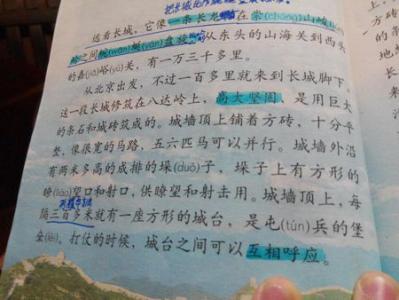 把长城比作
远看长城，它像一条长龙，在崇(chóng)山峻
岭之间蜿(wān)蜒(yán)盘旋。从东头的山海关到西头
的嘉(jiā)峪(yù)关，有一万三千多里。
从北京出发，不过一百多里就来到长城脚下。
这一段长城修筑在八达岭上，高大坚固，是用巨大
的条石和城砖筑成的。城墙顶上铺着方砖，十分平
整，像很宽的马路，五六匹马可以并行。城墙外沿
有两米多高的成排的垛(duǒ)子，垛子上有方形的
瞭(liào)望口和射口，供瞭望和射击用。城墙顶上，每
隔三百多米就有一座方形的城台，是屯(tún)兵的堡
垒(lěi)。打仗的时候，城台之间可以互相呼应。
方砖
的条